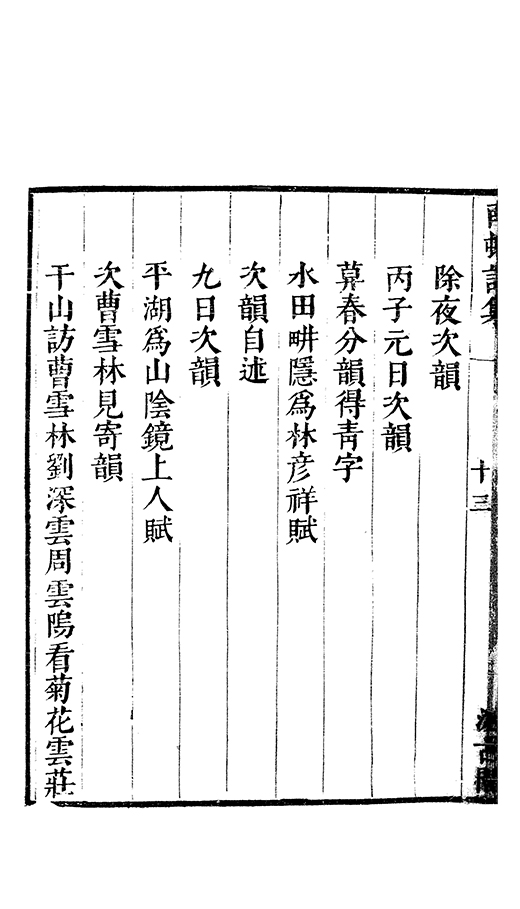 十三
除夜次韻
丙子元日次韻
莫春分韻得青字
水田畊隱爲林彦祥賦
次韻自述
九日次韻
平湖爲山陰鏡上人賦
次曹雪林見寄韻
干山訪曹雪林劉深雲周雲隝看菊花雲莊